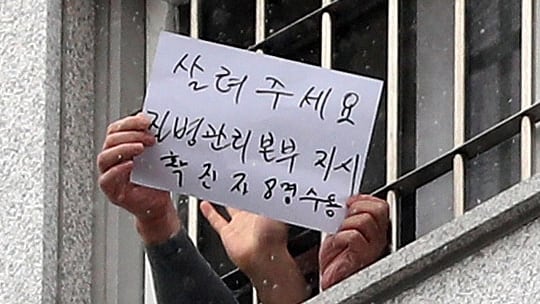 살려주세요
질병관리본부 지시
확진자 8명 수용